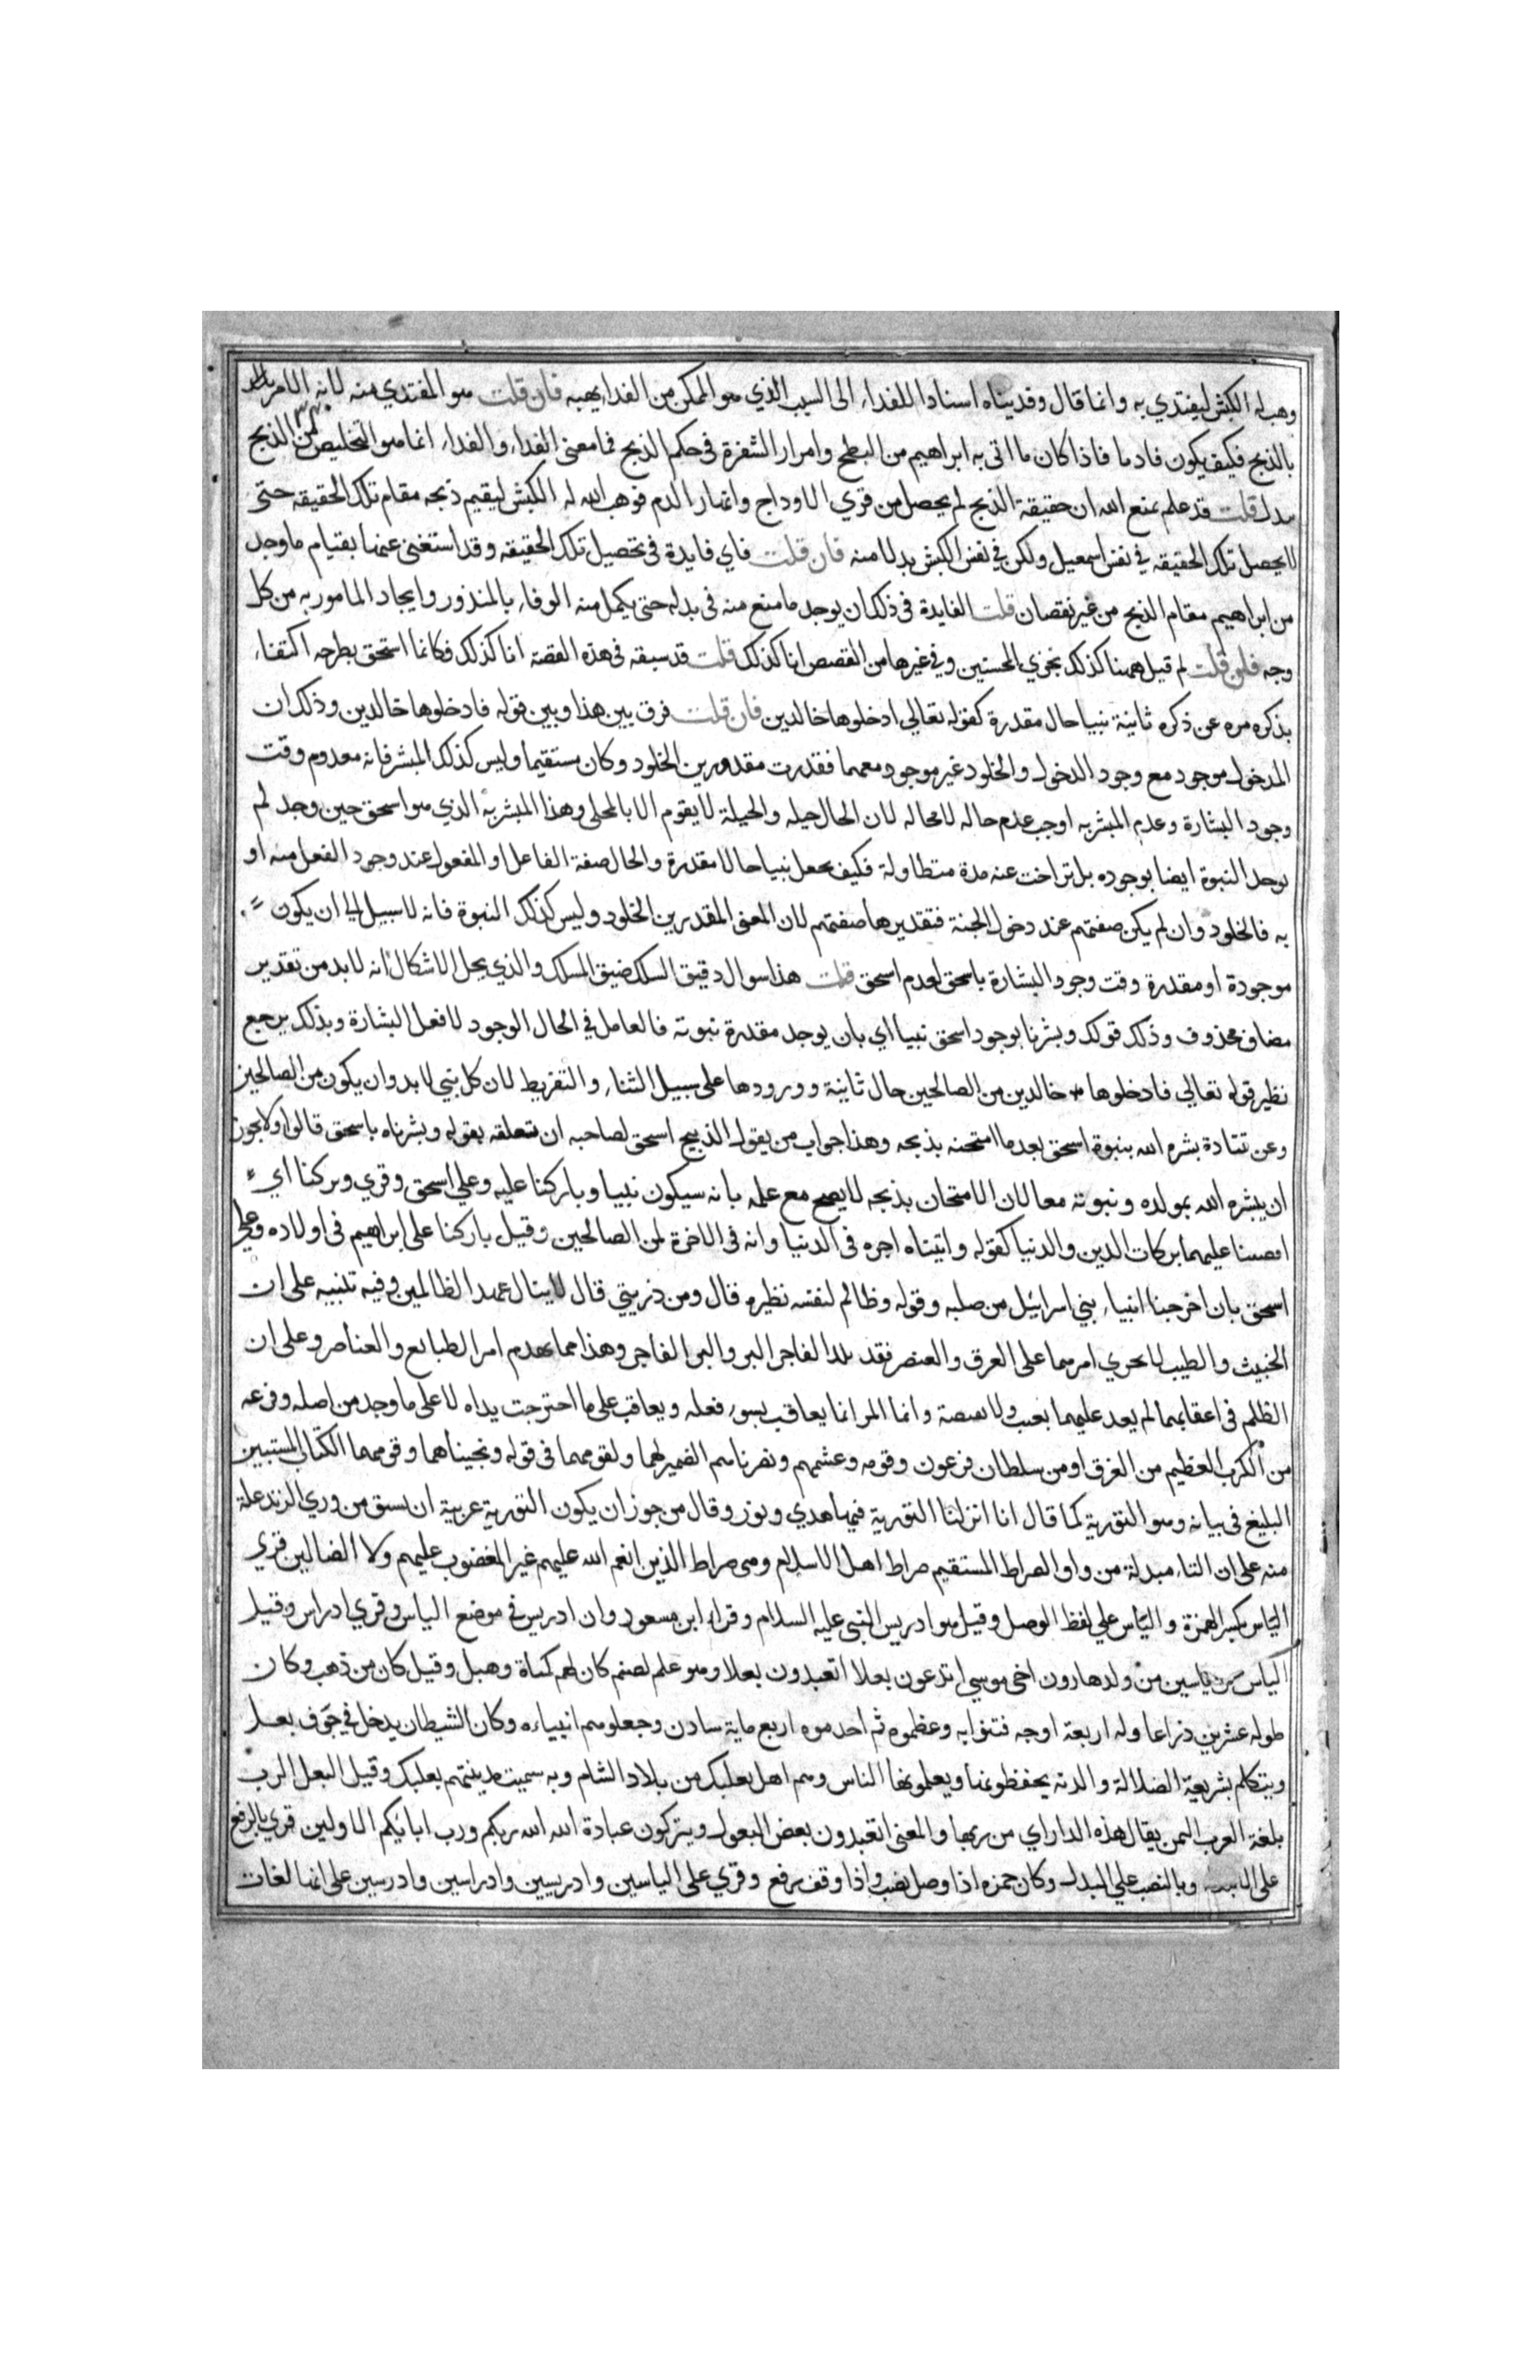 وهب له الكبش ليفتدي به وانما قال وفديناه اسنادا للفداء الى السبب الذي هو الممكن من الفداء بهبه فان قلت هو المفتدي منه لانه الامر
بالذبح فكيف يكون فاديا فاذا كان ما اتى به ابراهيم من البطح وامرار الشفرة في حكم الذبح فما معنى الفداء والفداء انما هو التخليص من الذبح
ببدل قلت قد علم بمنع الله ان حقيقة الذبح لم يحصل من فري الاوداج وانهار الدم فوهب الله له الكبش ليقيم ذبحه مقام تلك الحقيقه حتى
لا يحصل تلك الحقيقه في نفس اسمعيل ولكن في نفس الكبش بدلا منه فان قلت فاي فايدة في تحصيل تلك الحقيقه وقد استغنى عنها بقيام ما وجد
من ابراهيم مقام الذبح من غير نقصان قلت الفايدة في ذلك ان يوجد ما منع منه في بدله حتى يكمل منه الوفاء بالمنذور وايجاد المامور به من كل
وجه فان قلت لم قيل ههنا كذلك نجزي المحسنين وفي غيرها من القصص انا كذلك قلت قد سبقه في هذه القصة انا كذلك فكانما استحق بطرحه اكتفاء
بذكره مره عن ذكره ثانية نبيا حال مقدرة كقوله تعالى ادخلوها خالدين فان قلت فرق بين هذا وبين قوله فادخلوها خالدين وذلك ان
المدخول موجود مع وجود الدخول والخلود غير موجود معهما فقدرت مقدرين الخلود وكان مستقيما وليس كذلك المبشر فانه معدوم وقت
وجود البشارة وعدم المبشر به اوجب عدم حاله لا محاله لان الحال حيله والحيلة لا يقوم الا بالمحلى وهذا المبشر به الذي هو اسحق حين وجد لم
يوجد النبوة ايضا بوجوده بل تراخت عنه مدة متطاولة فكيف يجعل نبيا حالا مقدرة والحال صفة الفاعل او المفعول عند وجود الفعل منه او
به فالخلود وان لم يكن صفتهم عند دخول الجنة فتقديرها صفتهم لان المعنى المقدرين الخلود وليس كذلك النبوة فانه لا سبيل الى ان يكون
موجودة او مقدرة وقت وجود البشارة باسحق لعدم اسحق قلت هذا سوال دقيق السلك ضيق المسلك والذي يحل الاشكال انه لا بد من تقدير
مضاف محذوف وذلك قولك وبشرنا بوجود اسحق نبيا اي بان يوجد مقدرة نبوته فالعامل في الحال الوجود لا فعل البشارة وبذلك يرجع
نظير قوله تعالى فادخلوها خالدين من الصالحين حال ثانية وورودها على سبيل الثناء والتقريظ لان كل نبي لا بد وان يكون من الصالحين
وعن قتادة بشره الله بنبوة اسحق بعد ما امتحنه بذبحه وهذا جواب من يقول الذبيح اسحق لصاحبه ان تعلقه بقوله وبشرناه باسحق قالوا ولا يجوز
ان يبشره الله بمولده ونبوته معا لان الامتحان بذبحه لا يصح مع علمه بانه سيكون نبيا وباركنا عليه وعلى اسحق وقري وبركنا اي
افضنا عليهما بركات الدين والدنيا كقوله واتيناه اجره في الدنيا وانه في الاخرة لمن الصالحين وقيل باركنا على ابراهيم في اولاده وعلى
اسحق بان اخرجنا انبياء بني اسرائيل من صلبه وقوله وظالم لنفسه نظيره قال ومن ذريتي قال لا ينال عهد الظالمين وفيه تنبيه على ان
الخبيث والطيب لا يجري امرهما على العرق والعنصر فقد يلد الفاجر البر والبر الفاجر وهذا مما يهدم امر الطبائع والعناصر وعلى ان
الظلم في اعقابهما لم يعد عليهما بعيب ولا نقيصة وانما المرا انما يعاقب بسوء فعله ويعاقب على ما اجترحت يداه لا على ما وجد من اصله وفرعه
من الكرب العظيم من الغرق او من سلطان فرعون وقومه وغشمهم ونصرناهم الضمير لهما ولقومهما في قوله ونجيناهما وقومهما الكتاب المستبين
البليغ في بيانه وهو التورية كما قال انا انزلنا التورية فيها هدي ونور وقال من جوز ان يكون التورية عربية ان يشتق من وري الزند علة
منه على ان التاء مبدلة من واو الصراط المستقيم صراط اهل الاسلام وهي صراط الذين انعم الله عليهم غير المغضوب عليهم ولا الضالين قري
الياس بكسر الهمزة والياس على لفظ الوصل وقيل هو ادريس النبي عليه السلام وقراء ابن مسعود وان ادريس في موضع الياس وقري ادراس وقيل
الياس بن ياسين من ولد هارون اخي موسى اتدعون بعلا اتعبدون بعلا وهو علم لصنم كان لهم كمناة وهبل وقيل كان من ذهب وكان
طوله عشرين ذراعا وله اربعة اوجه فتنوا به وعظموه ثم اخدموه اربع ماية سادن وجعلوهم انبياءه وكان الشيطان يدخل في جوف بعل
ويتكلم بشريعة الضلالة والسدنه يحفظونها ويعلمونها الناس وهم اهل بعلبك من بلاد الشام وبه سميت مدينتهم بعلبك وقيل البعل الرب
بلغة العرب اليمن يقال هذه الدار اي من ربها والمعنى اتعبدون بعض البعول ويتركون عبادة الله الله ربكم ورب ابائكم الاولين قري بالرفع
على وبالنصب على البدل وكان حمزه اذا وصل نصب واذا وقف رفع وقري على الياسين وادريسين وادراسين وادرسين على انها لغات